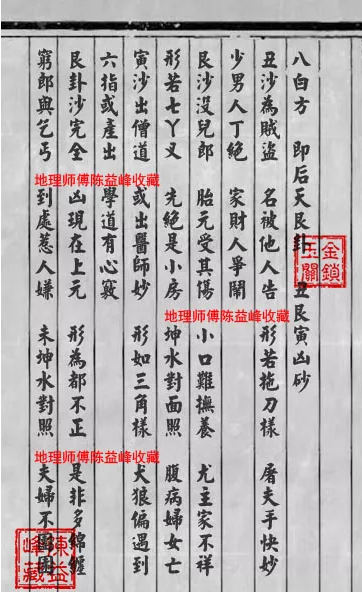 八白方 即后天艮卦 丑艮寅凶砂
丑沙為賊盜 名被他人告 形若拖刀樣 屠夫手快妙
少男人丁絕 家財人爭鬧
艮沙沒兒郎 胎元受其傷 小口難撫養 尤主家不祥
形若七丫叉 先絕是小房 坤水對面照 腹病婦女亡
寅沙出僧道 或出醫師妙 形如三角樣 犬狼偏遇到
六指或產出 學道有心竅
艮卦沙完全 凶現在上元 形為都不正 是非多錦纏
窮郎與乞丐 到處惹人嫌 未坤水對照 夫婦不
金鎖玉關
地理师傅陈益峰收藏
地理师傅陈益峰收藏
地理师傅陈益峰收藏
陳益峰藏